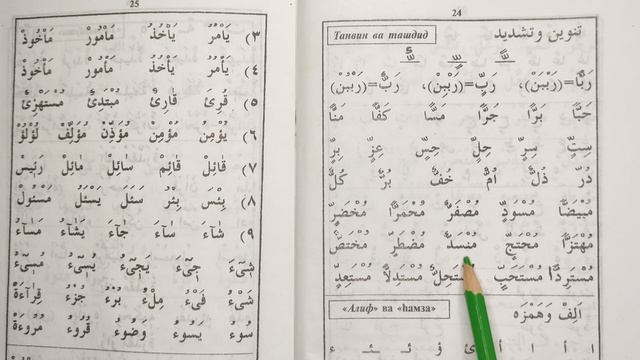 24
Танвин ва ташдид
تنوين وتشديد
رَبًّا=(رَبْبَنْ)، رَبٍّ=(رَبْبِنْ)، رَبٌّ=(رَبْبُنْ)
حَبًّا بَرًّا جَرًّا مَسًّا كَفًّا مَنًّا
سِتٍّ سِرٍّ حِلٍّ حِسٍّ عِزٍّ بِرٍّ
دُرٌّ ذُلٌّ اُمٌّ خُفٌّ بُرٌّ كُلٌّ
مُبْيَضًّا مُسْوَدٍّ مُصْفَرٌّ مُحْمَرًّا مُخْضَرٍّ
مُهْتَزًّا مُحْتَجٍّ مُنْسَدٌّ مُضْطَرٍّ مُخْتَصٌّ
مُسْتَرِدًّا مُسْتَحَبٍّ مُسْتَدِلًّا مُسْتَعِدٍّ
«Алиф» ва «ҳамза»
اَلِفْ وَهَمْزَه
25
٣) يَاْمُرُ يَاْخُذُ مَاْمُورْ مَاْخُوذْ
٤) يَأْمُرُ يَأْخُذُ مَأْمُورْ مَأْخُوذْ
٥) قُرِئَ قَارِئٌ مُبْتَدِئٌ مُسْتَهْزِئٌ
٦) يُؤْمِنُ مُؤْمِنْ مُؤَذِّنْ مُؤَلِّفْ لُؤْلُؤْ
٧) قَائِلْ قَائِمْ سَائِلْ مَائِلْ رَئِيسْ
٨) بِئْسَ بِئْرُ سَئَلَ يَسْئَلُ مَسْئُولْ
٩) شَاءَ سَاءَ جَاءَ يَشَاءُ مَسَاءً
شَىْءَ جِىءَ يَجِىءُ يُسِىءُ مُسِىءُ
شَىْءُ فَىْءُ مِلْءُ بُرْءُ جُزْءُ قِرَاءَةْ
سُوءُ يَسُوءُ وَضُوءُ قُرُوءُ مُرُوءَةْ